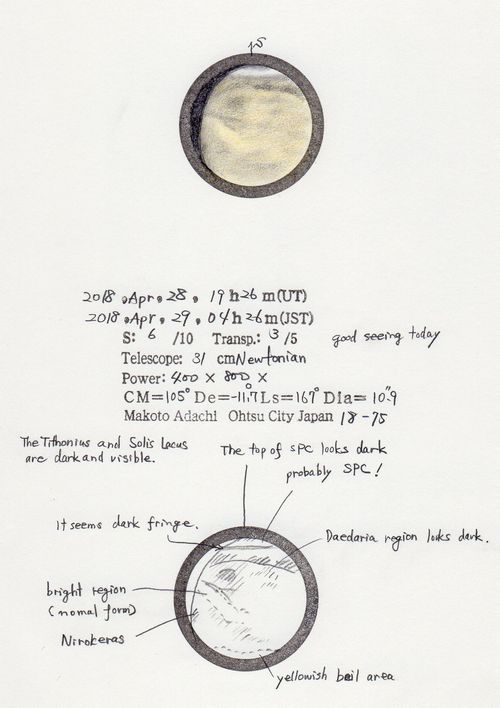 S
2018 . Apr . 28 . 19 h 26 m (UT)
2018 . Apr . 29 . 04 h 26 m (JST)
S: 6 /10 Transp.: 3 /5 good seeing today
Telescope: 31 cm Newtonian
Power: 400 × 800 ×
CM=105° De=-11.7° Ls=167° Dia=10".9
Makoto Adachi Ohtsu City Japan 18-75
The Tithonius and Solis Lacus
are dark and visible.
The top of SPC looks dark
probably SPC!
It seems dark fringe.
Daedaria region looks dark.
bright region
(nomal form)
Nirokeras
yellowish area